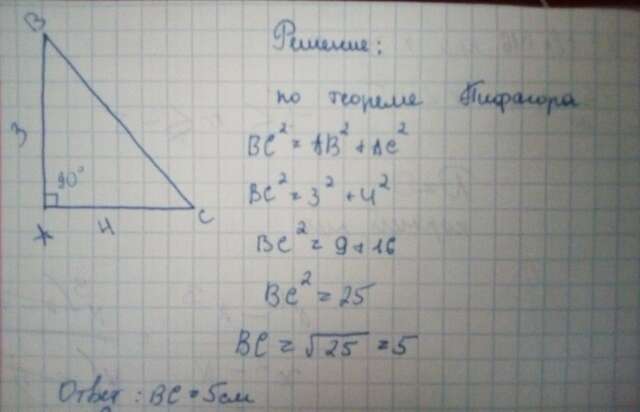 Решение:
по теореме Пифагора
BC² = AB² + AC²
BC² = 3² + 4²
BC² = 9 + 16
BC² = 25
BC = √25 = 5
Ответ: BC = 5 см
B
3
90°
A
4
C